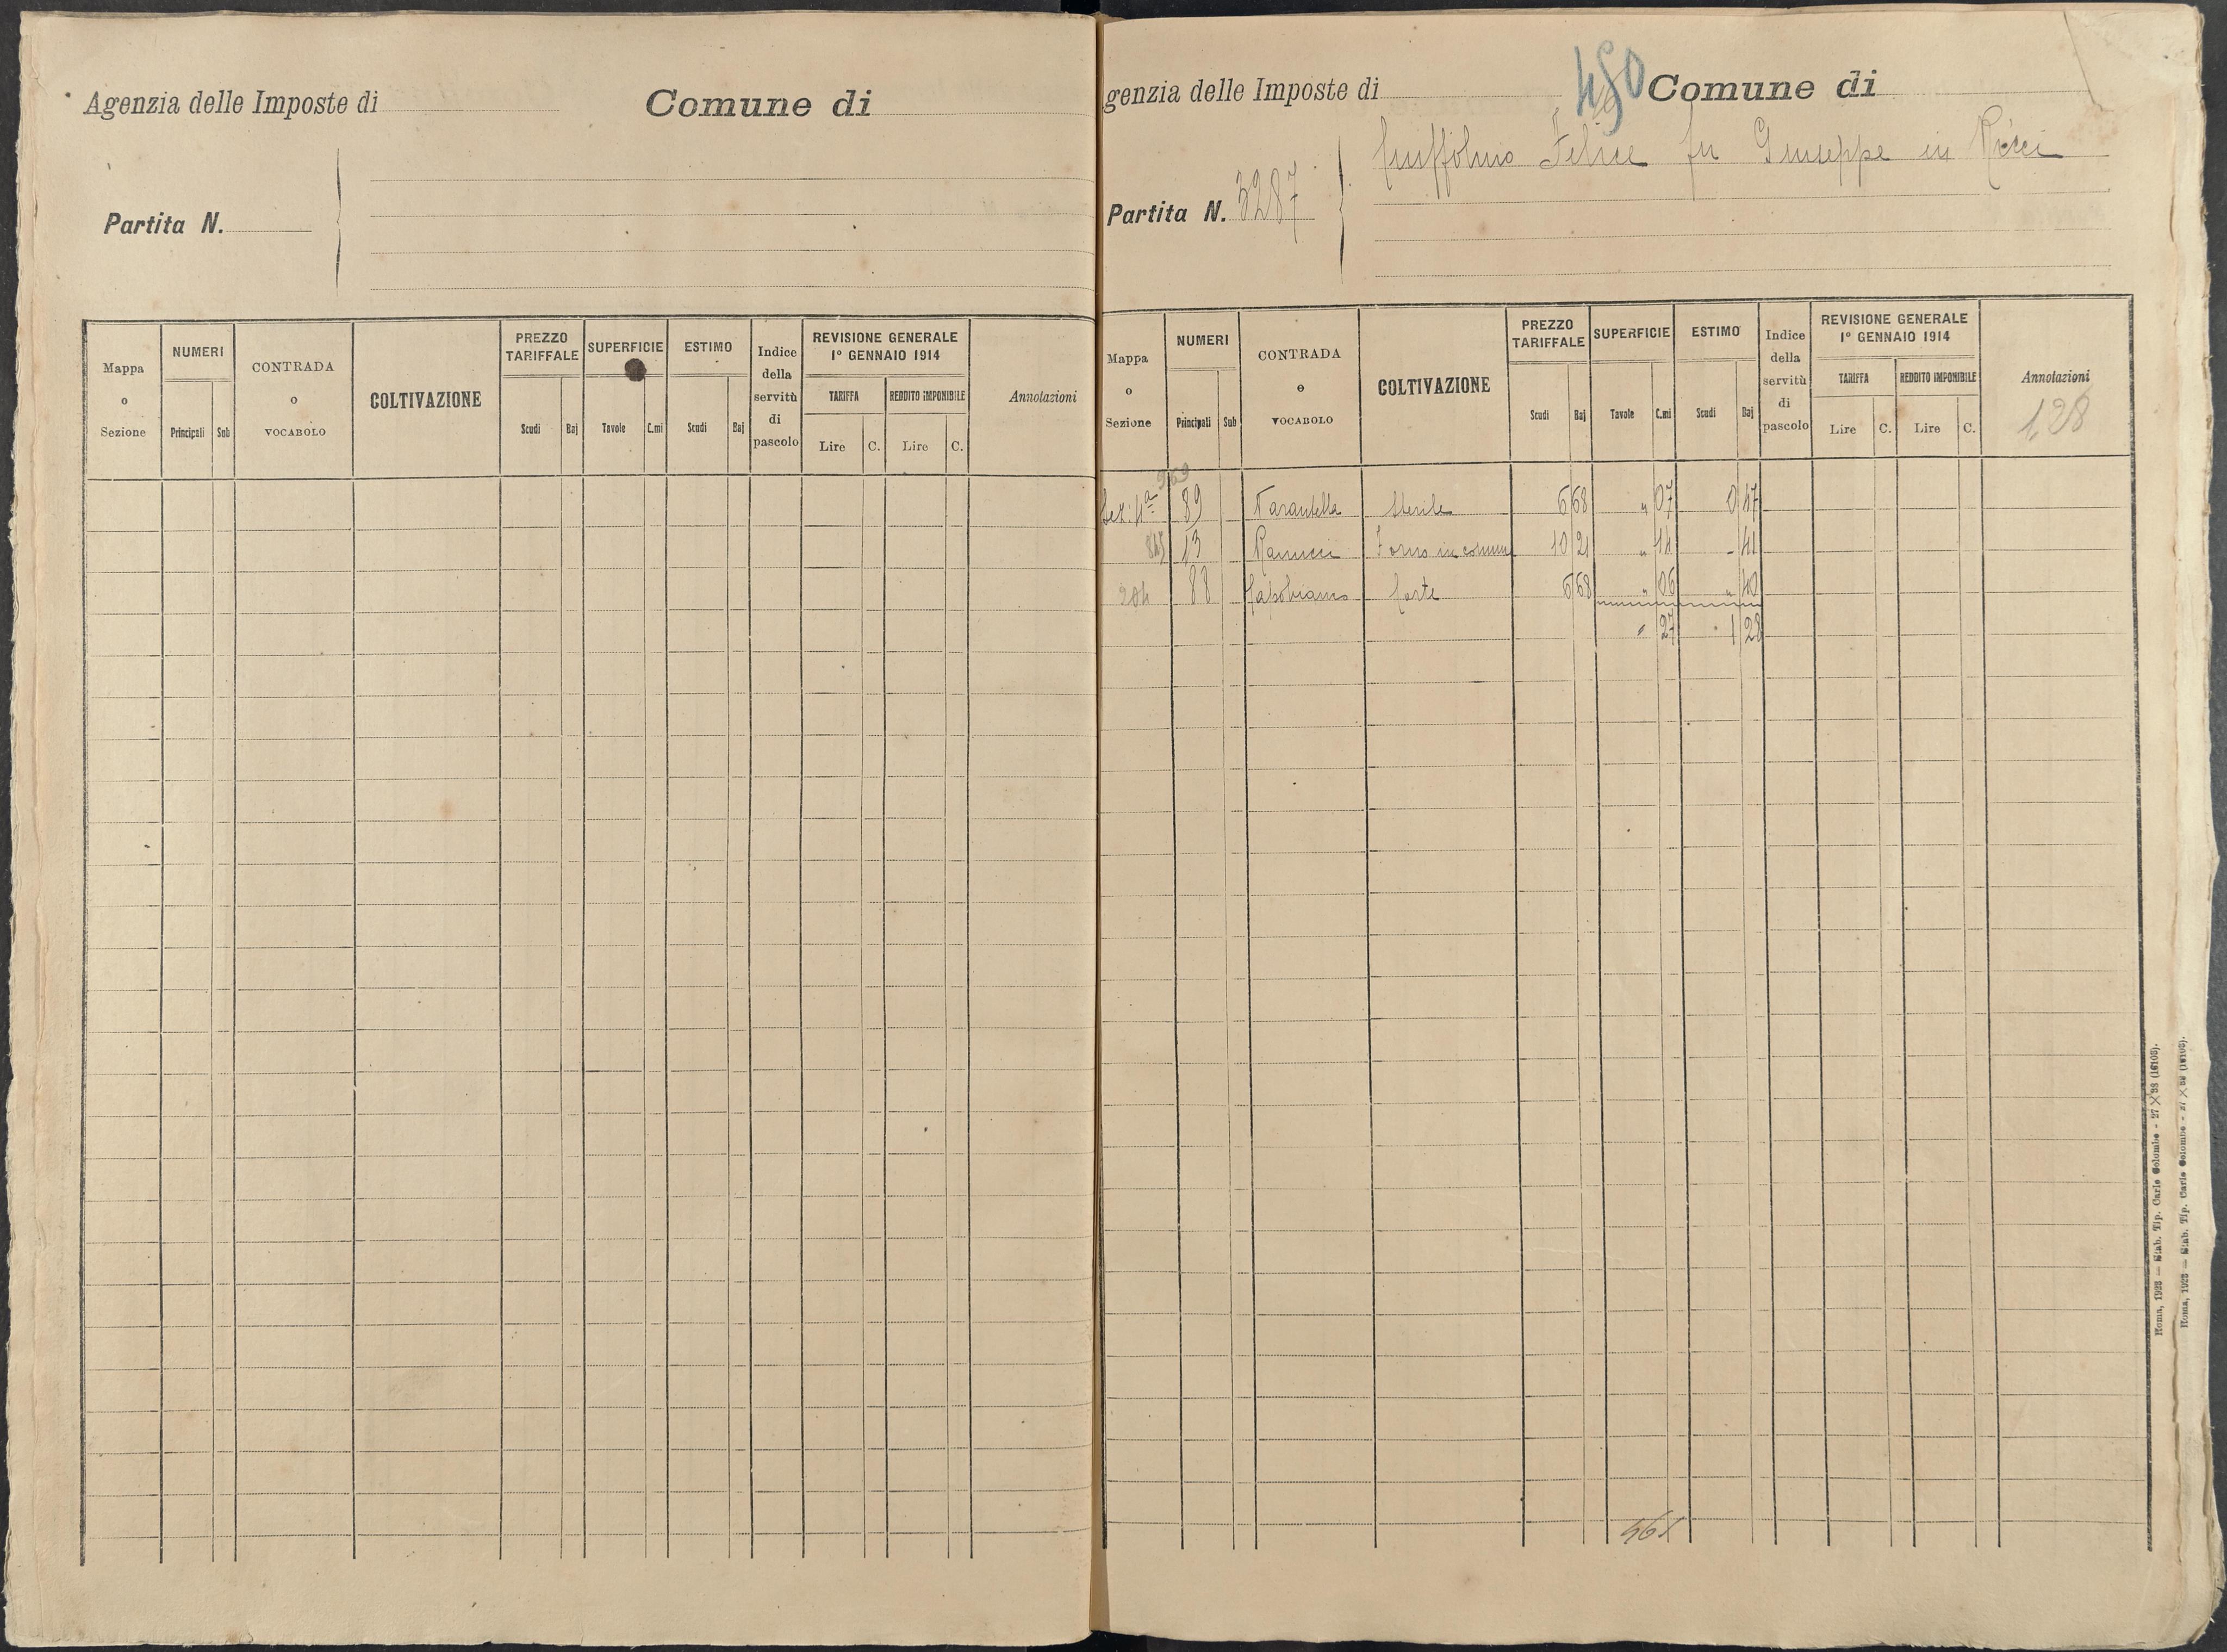 Agenzia delle Imposte di
Comune di
Partita N.
Mappa o Sezione
NUMERI
Principali Sub
CONTRADA o VOCABOLO
COLTIVAZIONE
PREZZO TARIFFALE
Scudi Baj
SUPERFICIE
Tavole C.mi
ESTIMO
Scudi Baj
Indice della servitù di pascolo
REVISIONE GENERALE
1° GENNAIO 1914
TARIFFA REDDITO IMPONIBILE
Lire C. Lire C.
Annotazioni
genzia delle Imposte di
450 Comune di
Felice fu Giuseppe in Ricci
Partita N. 3287
Mappa o Sezione
NUMERI
Principali Sub
CONTRADA o VOCABOLO
COLTIVAZIONE
PREZZO TARIFFALE
Scudi Baj
SUPERFICIE
Tavole C.mi
ESTIMO
Scudi Baj
Indice della servitù di pascolo
REVISIONE GENERALE
1° GENNAIO 1914
TARIFFA REDDITO IMPONIBILE
Lire C. Lire C.
Annotazioni
1,28
Sez: 4ª 89 Tarantella Sterile 6 68 " 07 0 47
13 Ranucci Forno in comune 10 21 " 14 - 41
204 88 Corte 6 68 " 06 " 40
" 27 1 28
461
Roma, 1923 — Stab. Tip. Carlo Colombo - 27 × 38 (16103).
Roma, 1923 — Stab. Tip. Carlo Colombo - 27 × 38 (16103).